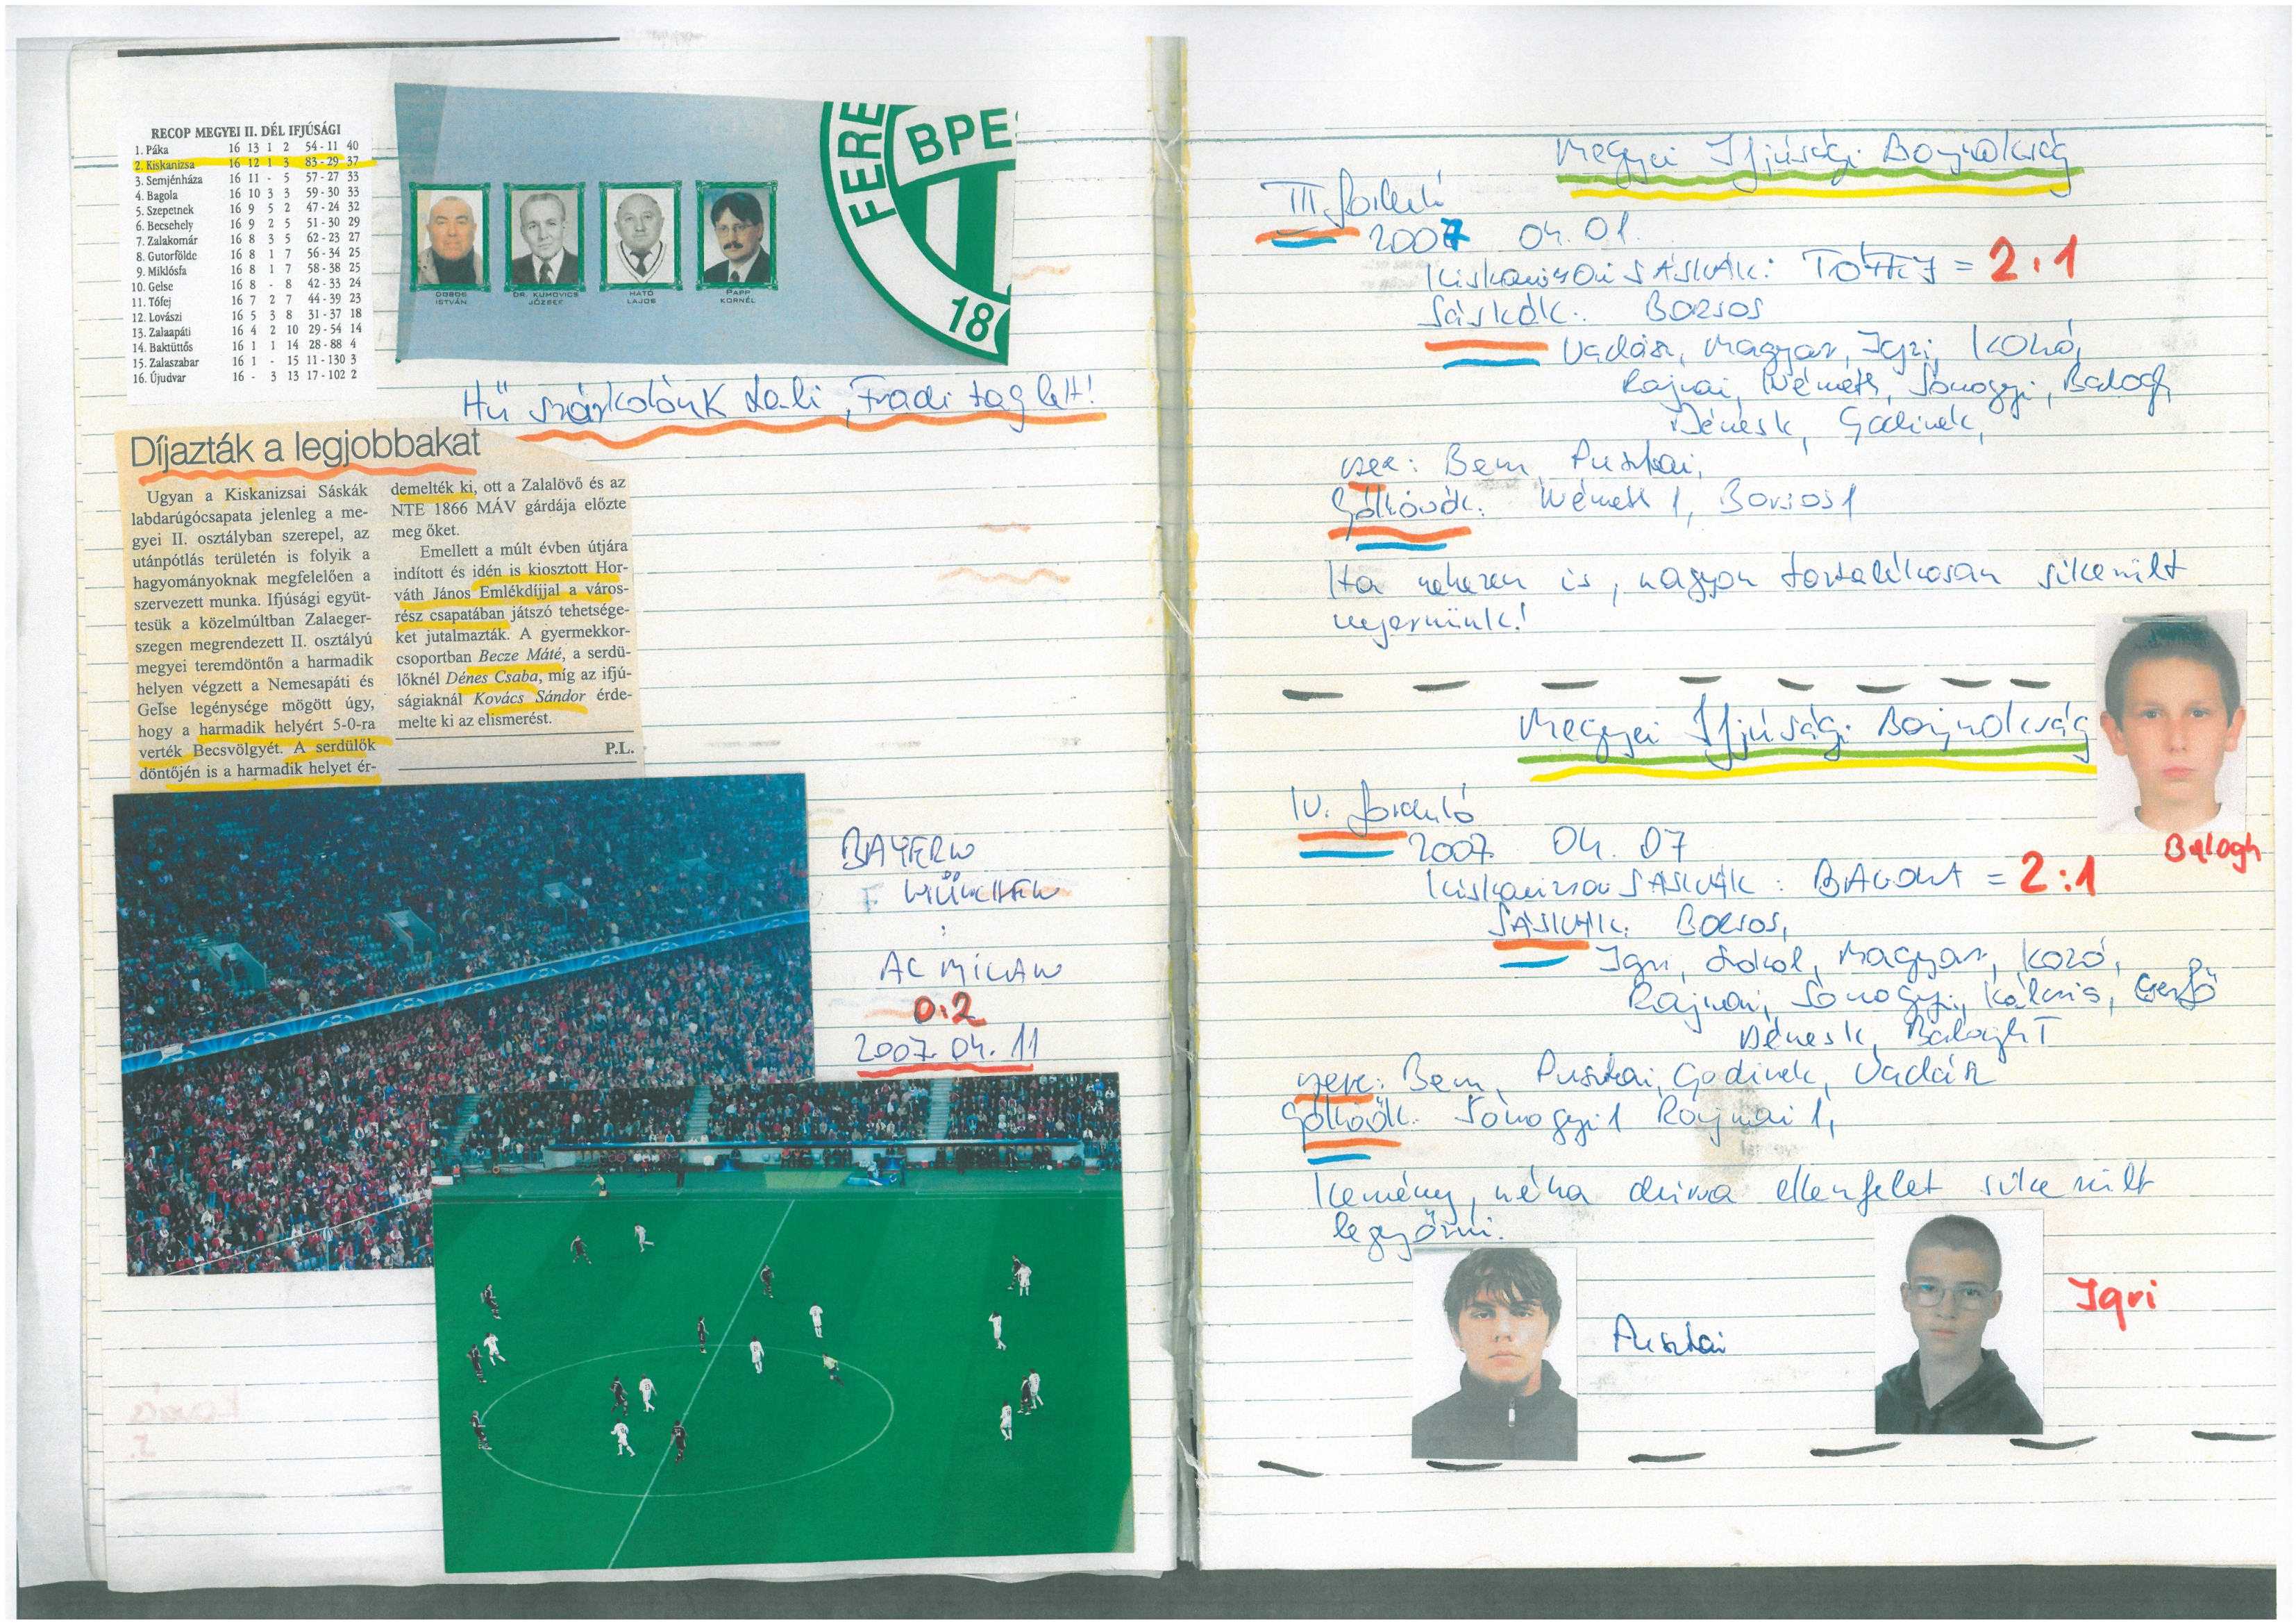 RECOP MEGYEI II. DÉL IFJÚSÁGI
1. Páka 16 13 1 2 54-11 40
2. Kiskanizsa 16 12 1 3 83-29 37
3. Semjénháza 16 11 - 5 57-27 33
4. Bagola 16 10 3 3 59-30 33
5. Szepetnek 16 9 5 2 47-24 32
6. Becsehely 16 9 2 5 51-30 29
7. Zalakomár 16 8 3 5 62-23 27
8. Gutorfölde 16 8 1 7 56-34 25
9. Miklósfa 16 8 1 7 58-38 25
10. Gelse 16 8 - 8 42-33 24
11. Tófej 16 7 2 7 44-39 23
12. Lovászi 16 5 3 8 31-37 18
13. Zalaapáti 16 4 2 10 29-54 14
14. Baktüttős 16 1 1 14 28-88 4
15. Zalaszabar 16 1 - 15 11-130 3
16. Újudvar 16 - 3 13 17-102 2
FERE
BPES
18
ISTVÁN
DR. KUMOVICS
JÓZSEF
HATÓ
LAJOS
PAPP
KORNÉL
Hű szurkolónk Lali, Fradi tag lett!
Díjazták a legjobbakat
Ugyan a Kiskanizsai Sáskák
labdarúgócsapata jelenleg a me-
gyei II. osztályban szerepel, az
utánpótlás területén is folyik a
hagyományoknak megfelelően a
szervezett munka. Ifjúsági együt-
tesük a közelmúltban Zalaeger-
szegen megrendezett II. osztályú
megyei teremdöntőn a harmadik
helyen végzett a Nemesapáti és
Gelse legénysége mögött úgy,
hogy a harmadik helyért 5-0-ra
verték Becsvölgyét. A serdülők
döntőjén is a harmadik helyet ér-
demelték ki, ott a Zalalövő és az
NTE 1866 MÁV gárdája előzte
meg őket.
Emellett a múlt évben útjára
indított és idén is kiosztott Hor-
váth János Emlékdíjjal a város-
rész csapatában játszó tehetsége-
ket jutalmazták. A gyermekkor-
csoportban Becze Máté, a serdü-
lőknél Dénes Csaba, míg az ifjú-
ságiaknál Kovács Sándor érde-
melte ki az elismerést.
P.L.
BAYERN
MÜNCHEN
:
AC MILAN
0:2
2007. 04. 11
Megyei Ifjúsági Bajnokság
III. forduló
2007 04. 01.
Kiskanizsai SÁSKÁK: TÓFEJ = 2:1
Sáskák: Borsos
Vadász, Magyar, Igri, Kohó,
Rajnai, Németh, Somogyi, Balogh
Dénes K, Godinek,
csere: Bem, Pusztai,
Gólövők: Németh 1, Borsos 1
Ha nehezen is, nagyon fordulatosan sikerült
nyernünk!
Megyei Ifjúsági Bajnokság
Balogh
IV. forduló
2007 04. 07
Kiskanizsai SÁSKÁK: BAGOLA = 2:1
SÁSKÁK: Borsos,
Igri, Sokol, Magyar, Kozó,
Rajnai, Somogyi, Kálcris, Cserfő
Dénes K, Balogh T
csere: Bem, Pusztai, Godinek, Vadász
Góllövők: Somogyi 1 Rajnai 1,
Kemény, néha durva ellenfelet sikerült
legyőzni.
Pusztai
Igri